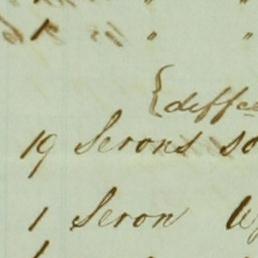 1 " "
{diffe
19 Serons so
1 Seron
1